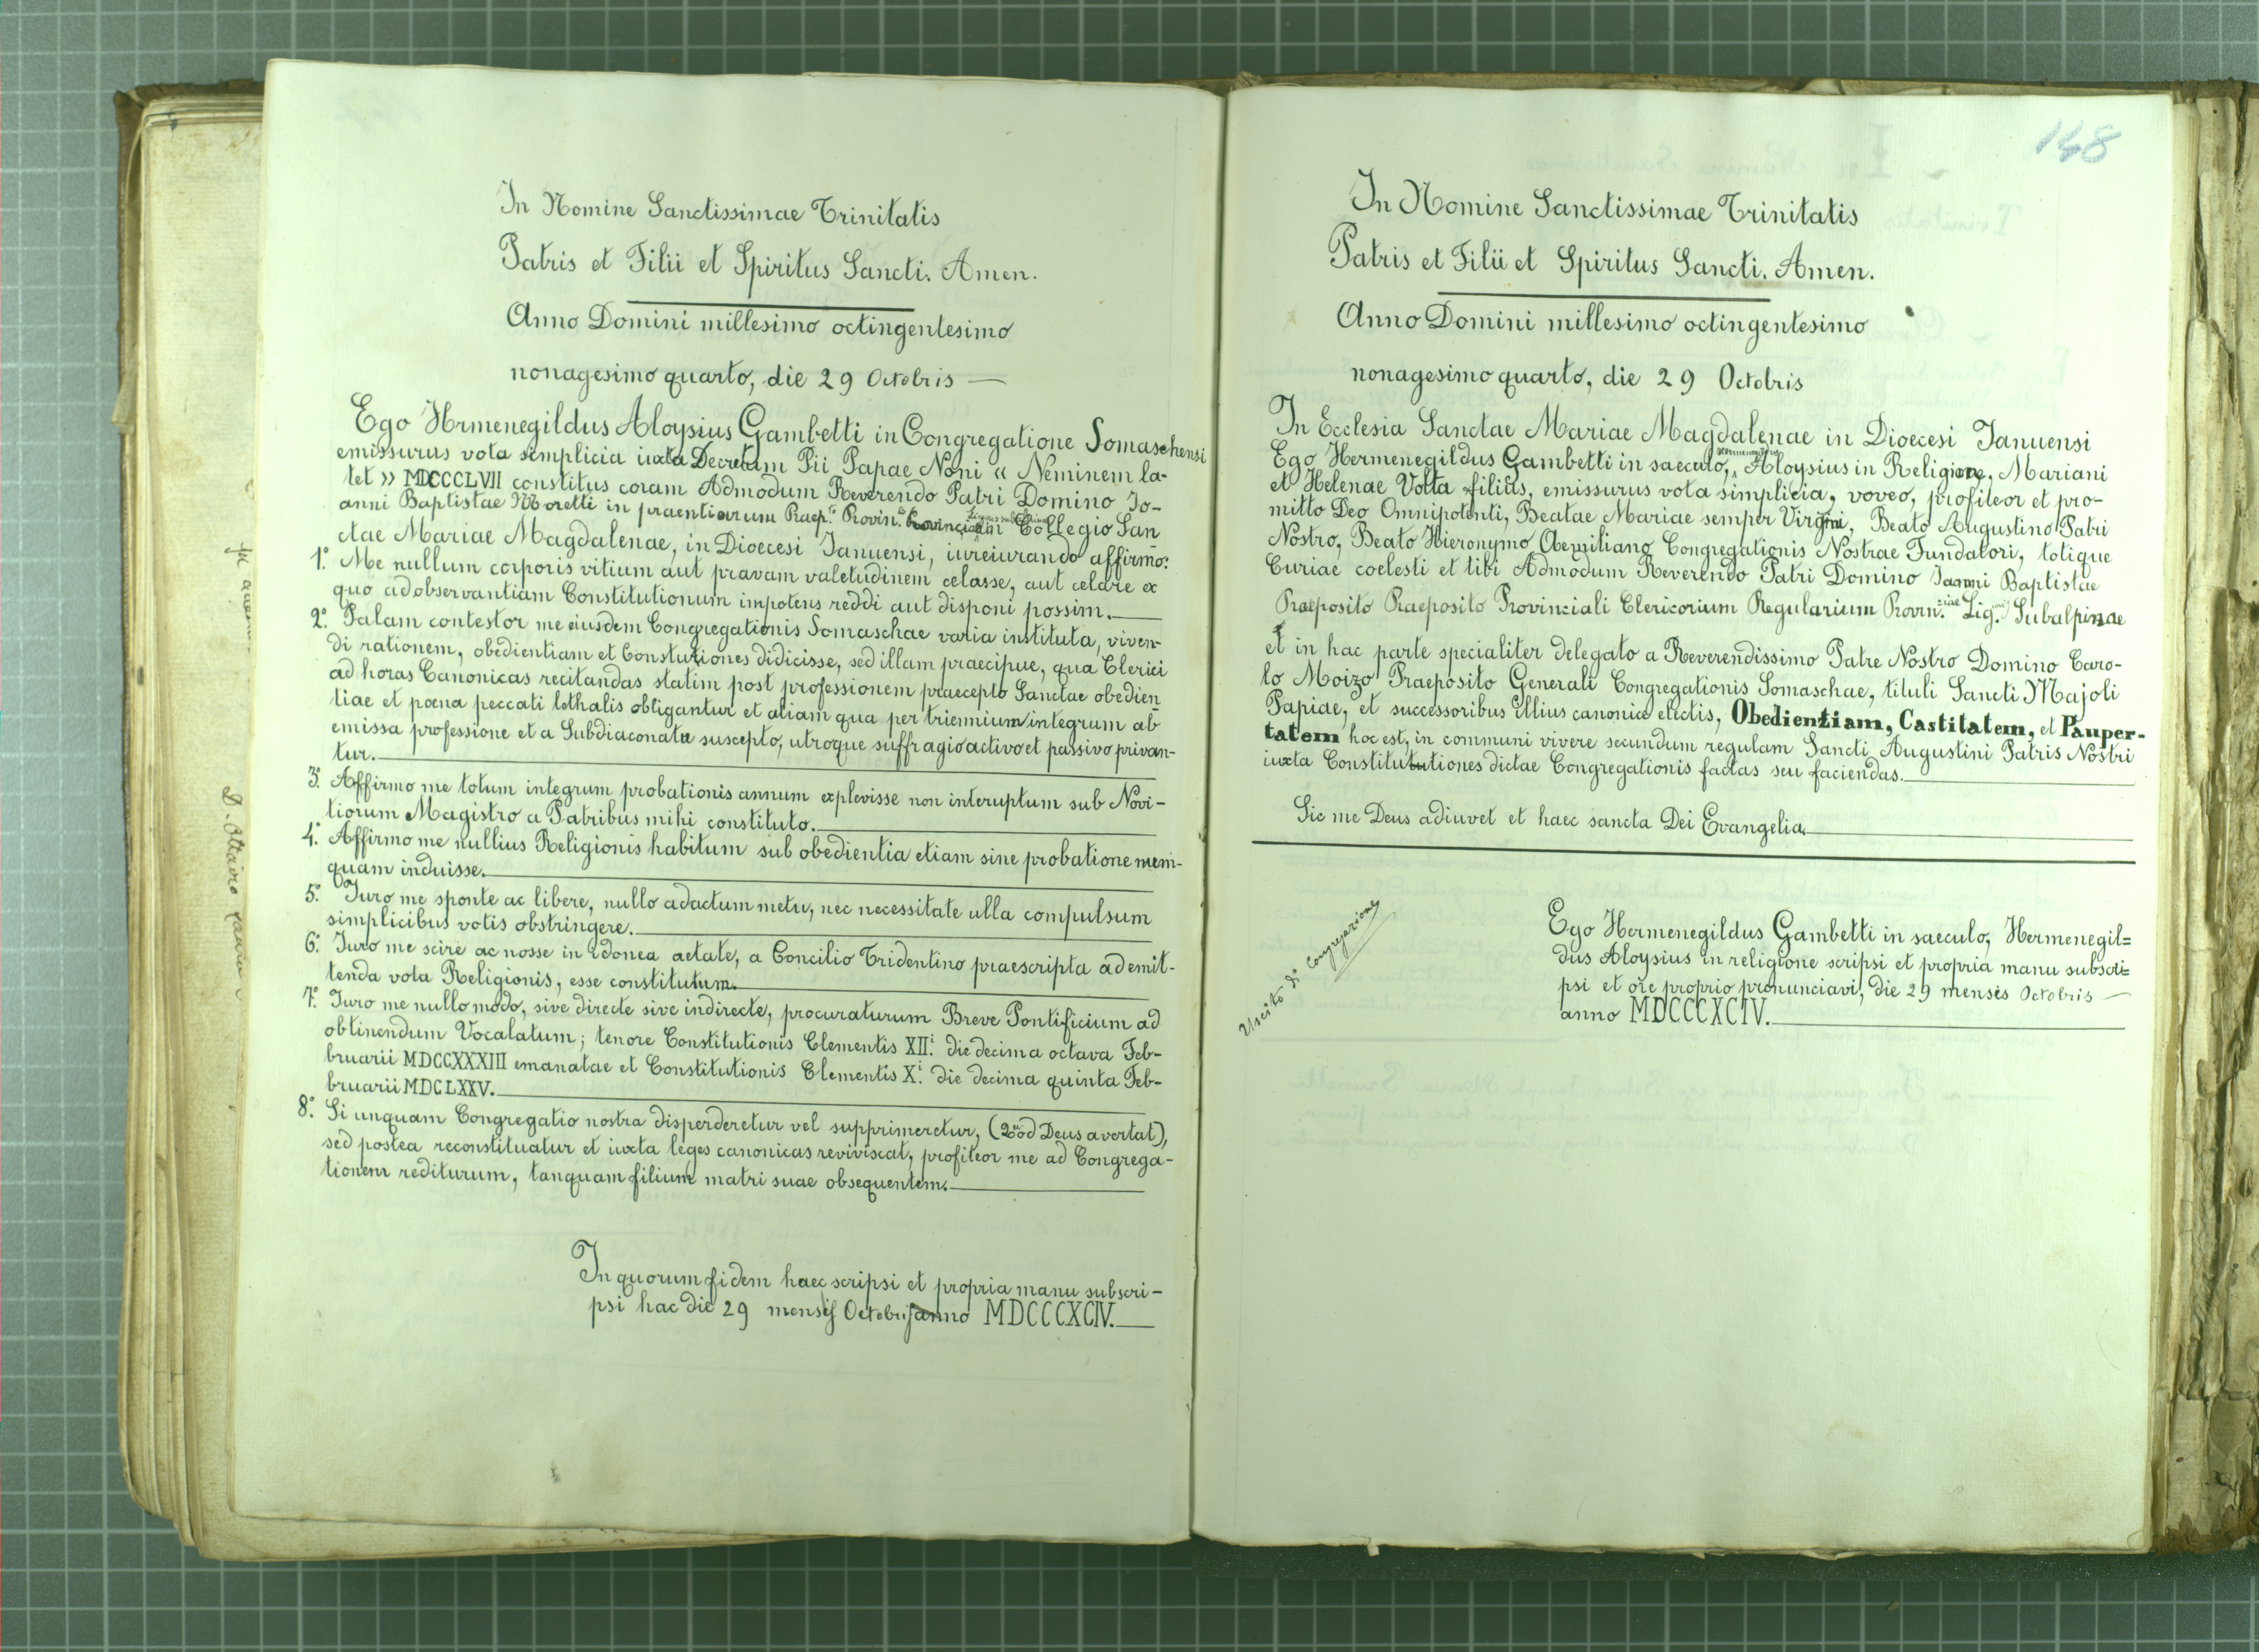 In Nomine Sanctissimae Trinitatis
Patris et Filii et Spiritus Sancti. Amen.
Anno Domini millesimo octingentesimo
nonagesimo quarto, die 29 Octobris —
Ego Hrmenegildus Aloysius Gambetti in Congregatione Somaschensi
emissurus vota simplicia iuxta Decretum Pii Papae Noni « Neminem la-
tet » MDCCCLVII constitus coram Admodum Reverendo Patri Domino Jo-
anni Baptistae Moretti in praentiarum Praep.to Provin. Collegio San
ctae Mariae Magdalenae, in Dioecesi Ianuensi, iureiurando affirmo:
1.° Me nullum corporis vitium aut pravam valetudinem celasse, aut celare ex
quo ad observantiam Constitutionum impotens reddi aut disponi possim.
2.° Palam contestor me eiusdem Congregationis Somaschae varia instituta, viven-
di rationem, obedientiam et Constutiones didicisse, sed illam praecipue, qua Clerici
ad horas Canonicas recitandas statim post professionem praecepto Sanctae obedien
tiae et poena peccati lethalis obligantur et aliam qua per triennium integrum ab
emissa professione et a Subdiaconatu suscepto, utroque suffragio activo et passivo privan-
tur.
3.° Affirmo me totum integrum probationis annum explevisse non interuptum sub Novi-
tiorum Magistro a Patribus mihi constituto.
4.° Affirmo me nullius Religionis habitum sub obedientia etiam sine probatione
quam induisse.
5.° Iuro me sponte ac libere, nullo adactum metu, nec necessitate ulla compulsum
simplicibus votis obstringere.
6.° Iuro me scire ac nosse in idonea aetate, a Concilio Tridentino praescripta ad emit-
tenda vota Religionis, esse constitutum.
7.° Iuro me nullo modo, sive directe sive indirecte, procuraturum Breve Pontificium ad
obtinendum Vocalatum; tenore Constitutionis Clementis XII.i die decima octava Feb-
bruarii MDCCXXXIII emanatae et Constitutionis Clementis X.i die decima quinta Feb-
bruarii MDCLXXV.
8.° Si unquam Congregatio nostra disperderetur vel supprimeretur, (Quod Deus avertat),
sed postea reconstituatur et iuxta leges canonicas reviviscat, profiteor me ad Congrega-
tionem rediturum, tanquam filium matri suae obsequentem.
In quorum fidem haec scripsi et propria manu subscri-
psi hac die 29 mensis Octobris anno MDCCCXCIV.
148
In Nomine Sanctissimae Trinitatis
Patris et Filii et Spiritus Sancti. Amen.
Anno Domini millesimo octingentesimo
nonagesimo quarto, die 29 Octobris
In Ecclesia Sanctae Mariae Magdalenae in Dioecesi Ianuensi
Ego Hermenegildus Gambetti in saeculo, Hermenegildus Aloysius in Religione, Mariani
et Helenae Volta filius, emissurus vota simplicia, voveo, profiteor et pro-
mitto Deo Omnipotenti, Beatae Mariae semper Virgini, Beato Augustino Patri
Nostro, Beato Hieronymo Aemiliano Congregationis Nostrae Fundatori, totique
Curiae coelesti et tibi Admodum Reverendo Patri Domino Ioanni Baptistae
Praeposito Praeposito Provinciali Clericorium Regularium Provin.ciae Lig. Subalpinae
et in hac parte specialiter delegato a Reverendissimo Patre Nostro Domino Caro-
lo Moizo Praeposito Generali Congregationis Somaschae, tituli Sancti Majoli
Papiae, et successoribus illius canonice electis, Obedientiam, Castitatem, et Pauper-
tatem hoc est, in communi vivere secundum regulam Sancti Augustini Patris Nostri
iuxta Constitututiones dictae Congregationis factas seu faciendas.
Sic me Deus adiuvet et haec sancta Dei Evangelia.
Uscito di Congregazione
Ego Hermenegildus Gambetti in saeculo, Hermenegil=
dus Aloysius in religione scripsi et propria manu subscri=
psi et ore proprio pronunciavi, die 29 mensis Octobris —
anno MDCCCXCIV.